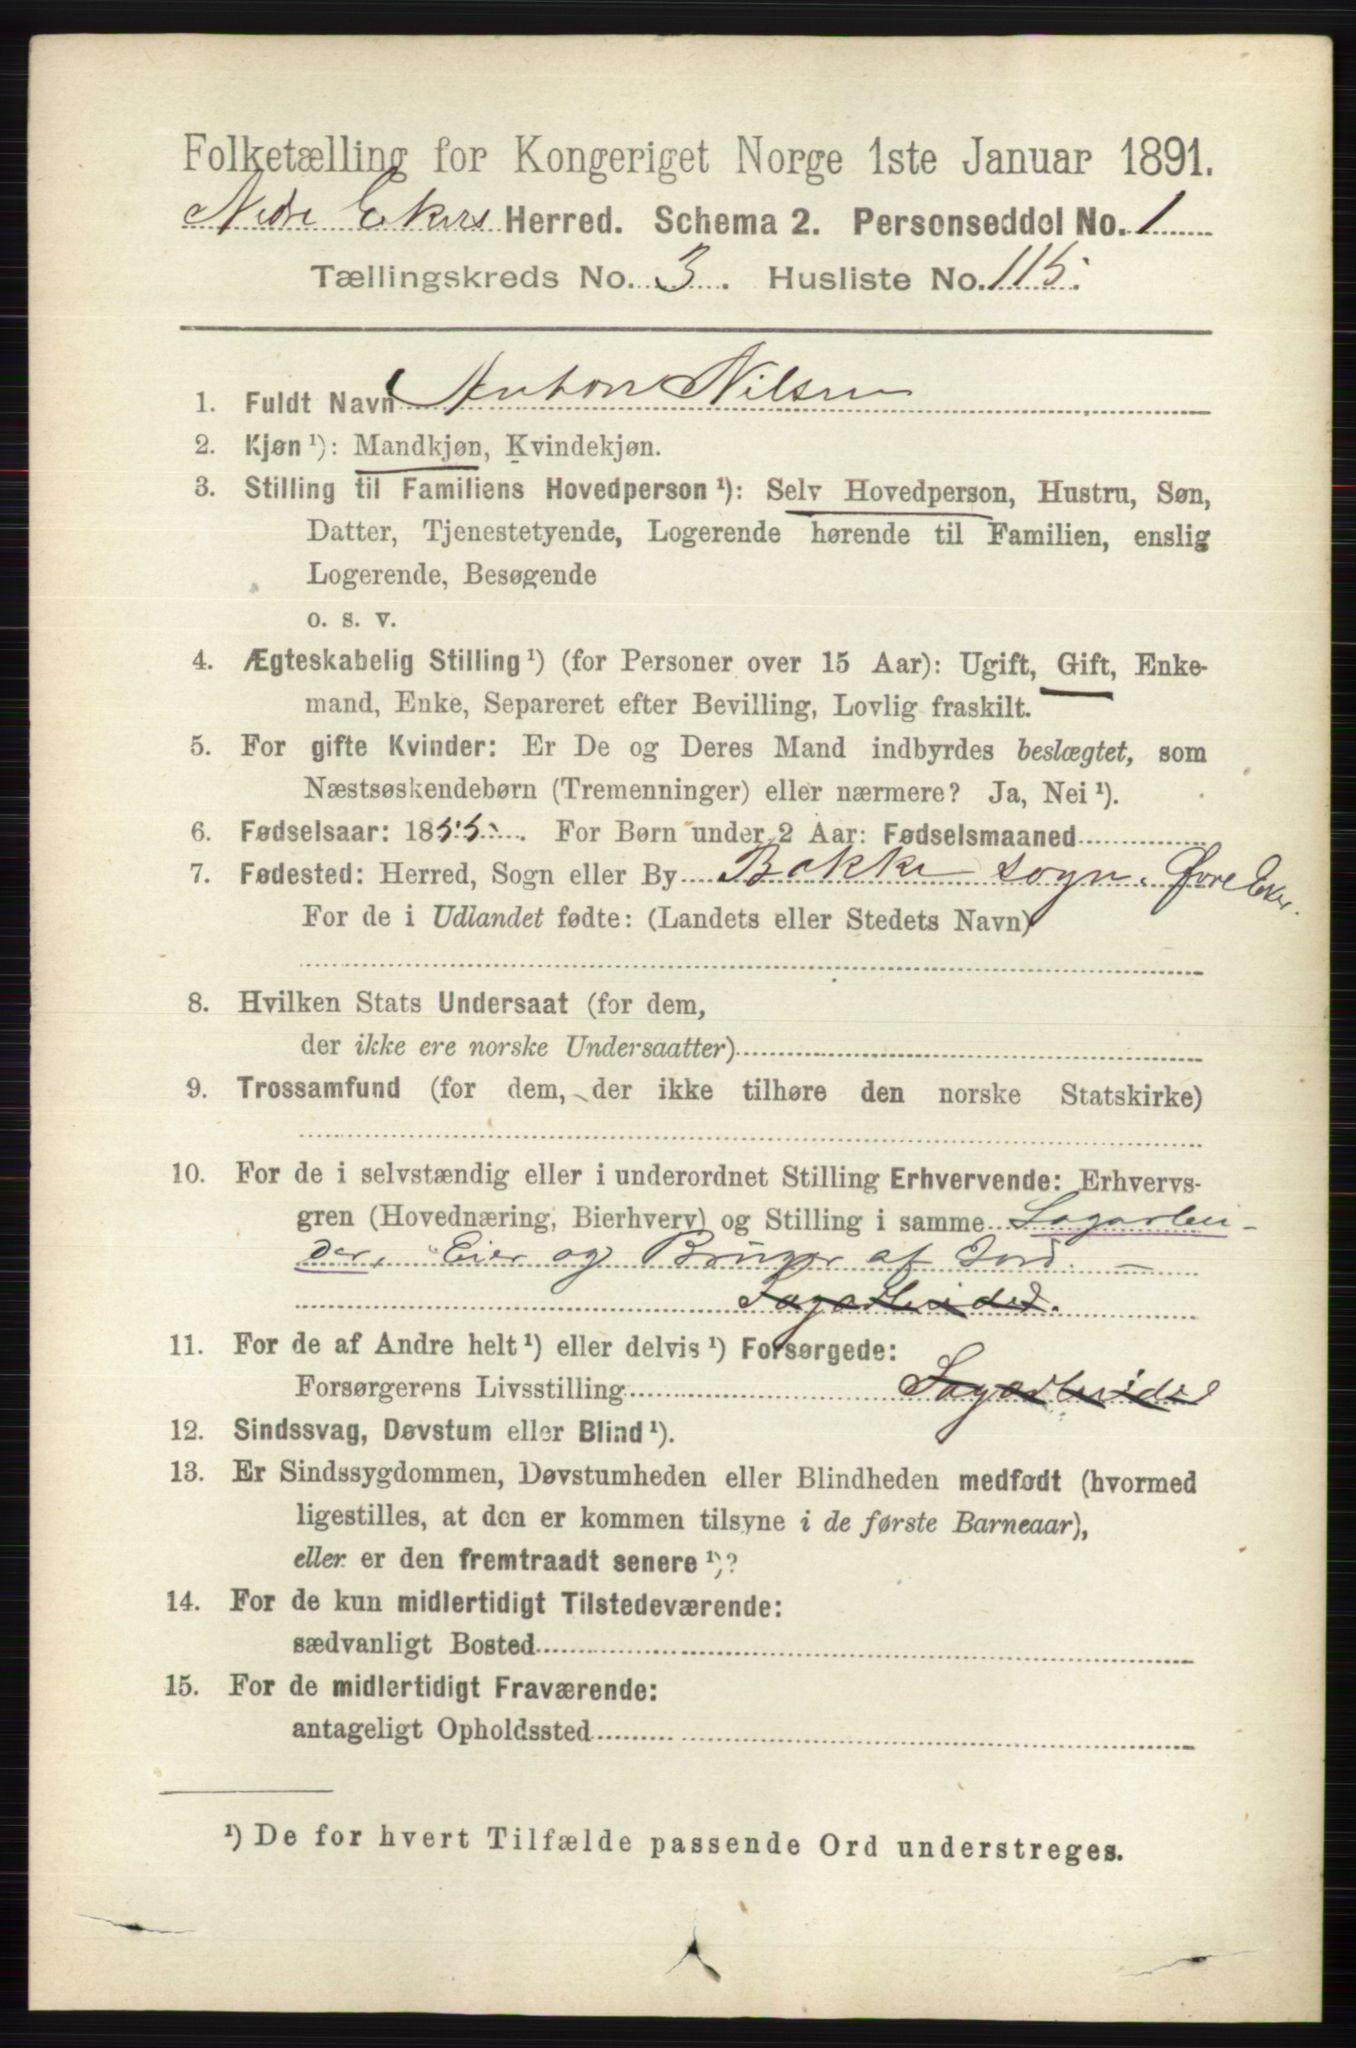 Folketælling for Kongeriget Norge 1ste Januar 1891.
Nedre Ekers Herred. Schema 2. Personseddel No. 1
Tællingskreds No. 3. Husliste No. 115.
1. Fuldt Navn Anton Nilsen
2. Kjøn¹): Mandkjøn, Kvindekjøn.
3. Stilling til Familiens Hovedperson¹): Selv Hovedperson, Hustru, Søn,
Datter, Tjenestetyende, Logerende hørende til Familien, enslig
Logerende, Besøgende
o. s. v.
4. Ægteskabelig Stilling¹) (for Personer over 15 Aar): Ugift, Gift, Enke-
mand, Enke, Separeret efter Bevilling, Lovlig fraskilt.
5. For gifte Kvinder: Er De og Deres Mand indbyrdes beslægtet, som
Næstsøskendebørn (Tremenninger) eller nærmere? Ja, Nei¹).
6. Fødselsaar: 1855. For Børn under 2 Aar: Fødselsmaaned
7. Fødested: Herred, Sogn eller By Bakke sogn. Øvre Eker.
For de i Udlandet fødte: (Landets eller Stedets Navn)
8. Hvilken Stats Undersaat (for dem,
der ikke ere norske Undersaatter)
9. Trossamfund (for dem, der ikke tilhøre den norske Statskirke)
10. For de i selvstændig eller i underordnet Stilling Erhvervende: Erhvervs-
gren (Hovednæring, Bierhverv) og Stilling i samme Sagarbei-
der, Eier og Bruger af Jord. —
Sagarbeider.
11. For de af Andre helt¹) eller delvis¹) Forsørgede:
Forsørgerens Livsstilling Sagarbeider
12. Sindssvag, Døvstum eller Blind¹).
13. Er Sindssygdommen, Døvstumheden eller Blindheden medfødt (hvormed
ligestilles, at den er kommen tilsyne i de første Barneaar),
eller er den fremtraadt senere¹)?
14. For de kun midlertidigt Tilstedeværende:
sædvanligt Bosted
15. For de midlertidigt Fraværende:
antageligt Opholdssted
¹) De for hvert Tilfælde passende Ord understreges.